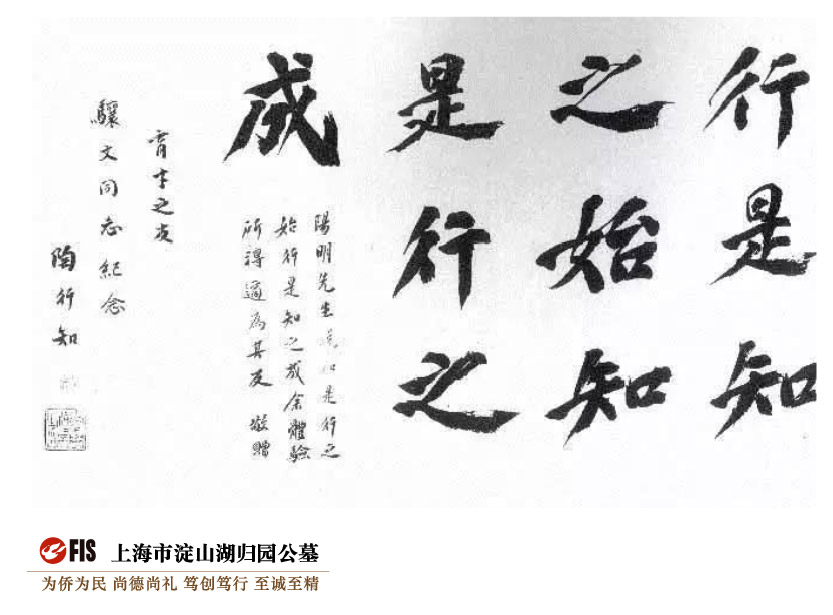 行是知
之始知
是行之
成
陽明先生知是行之
始行是知之成余體驗
所得適為其反 敬贈
育才之友
驤文同志紀念
陶行知
FIS 上海市淀山湖归园公墓
为侨为民 尚德尚礼 笃创笃行 至诚至精